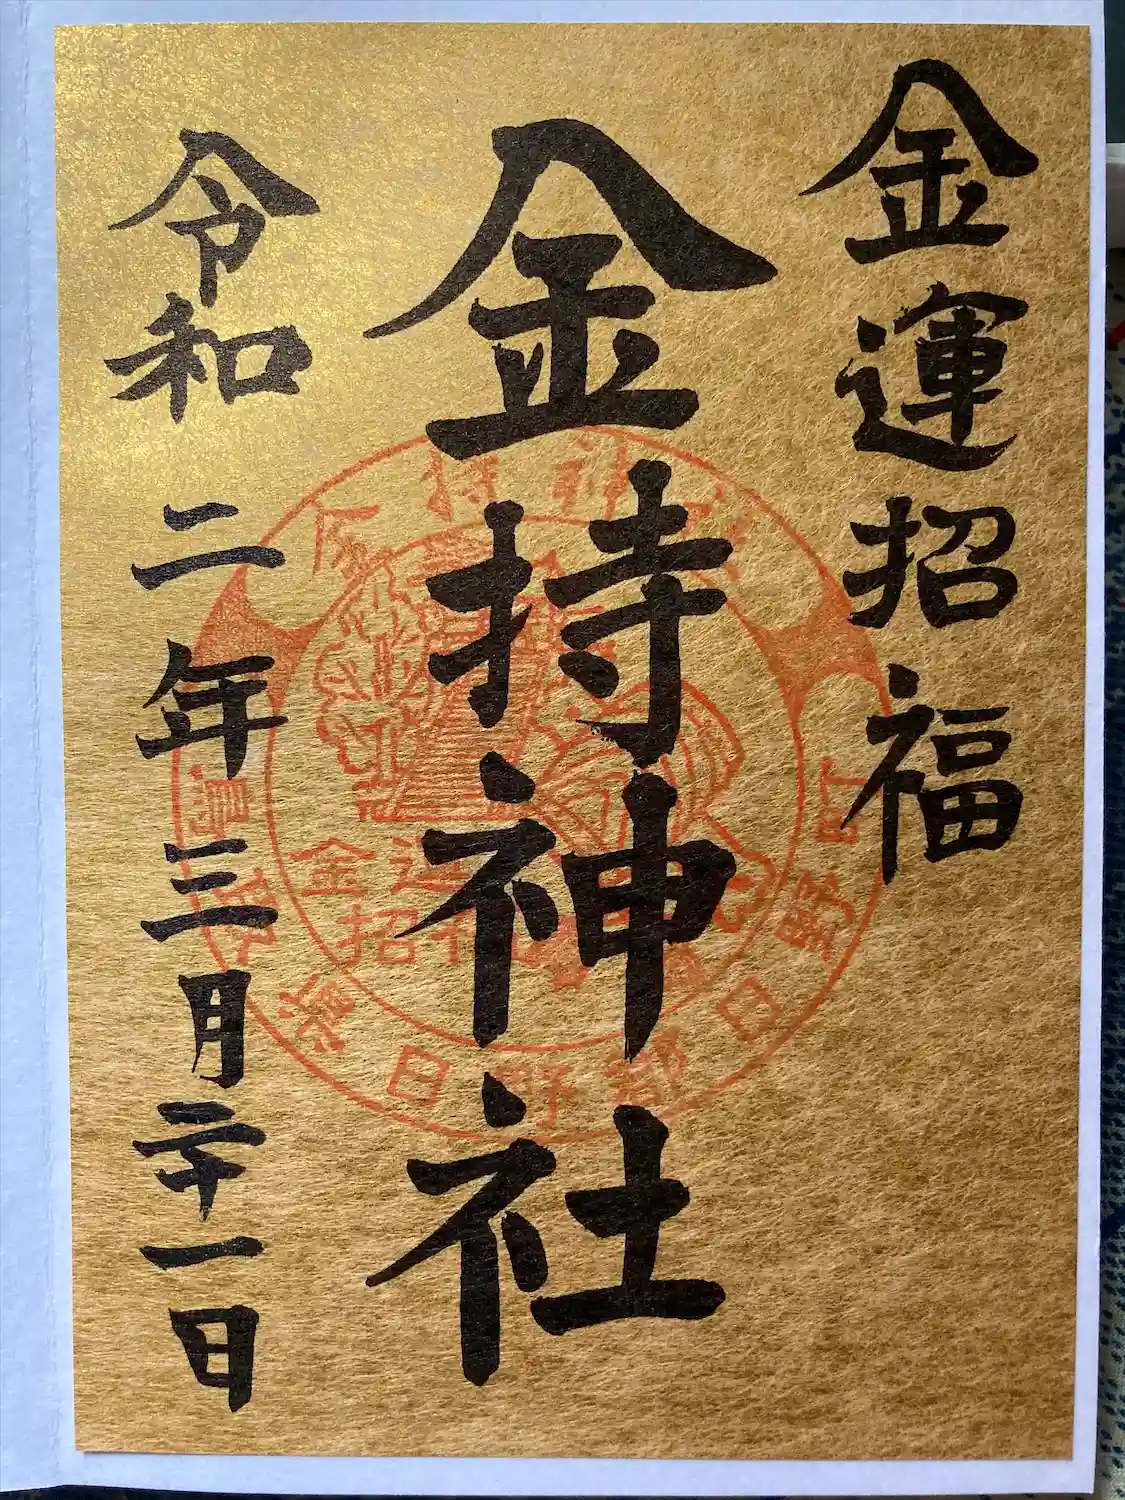 金運招福
金持神社
令和二年三月二十一日
金持神社
鳥取県日野郡日野町
金運
招福